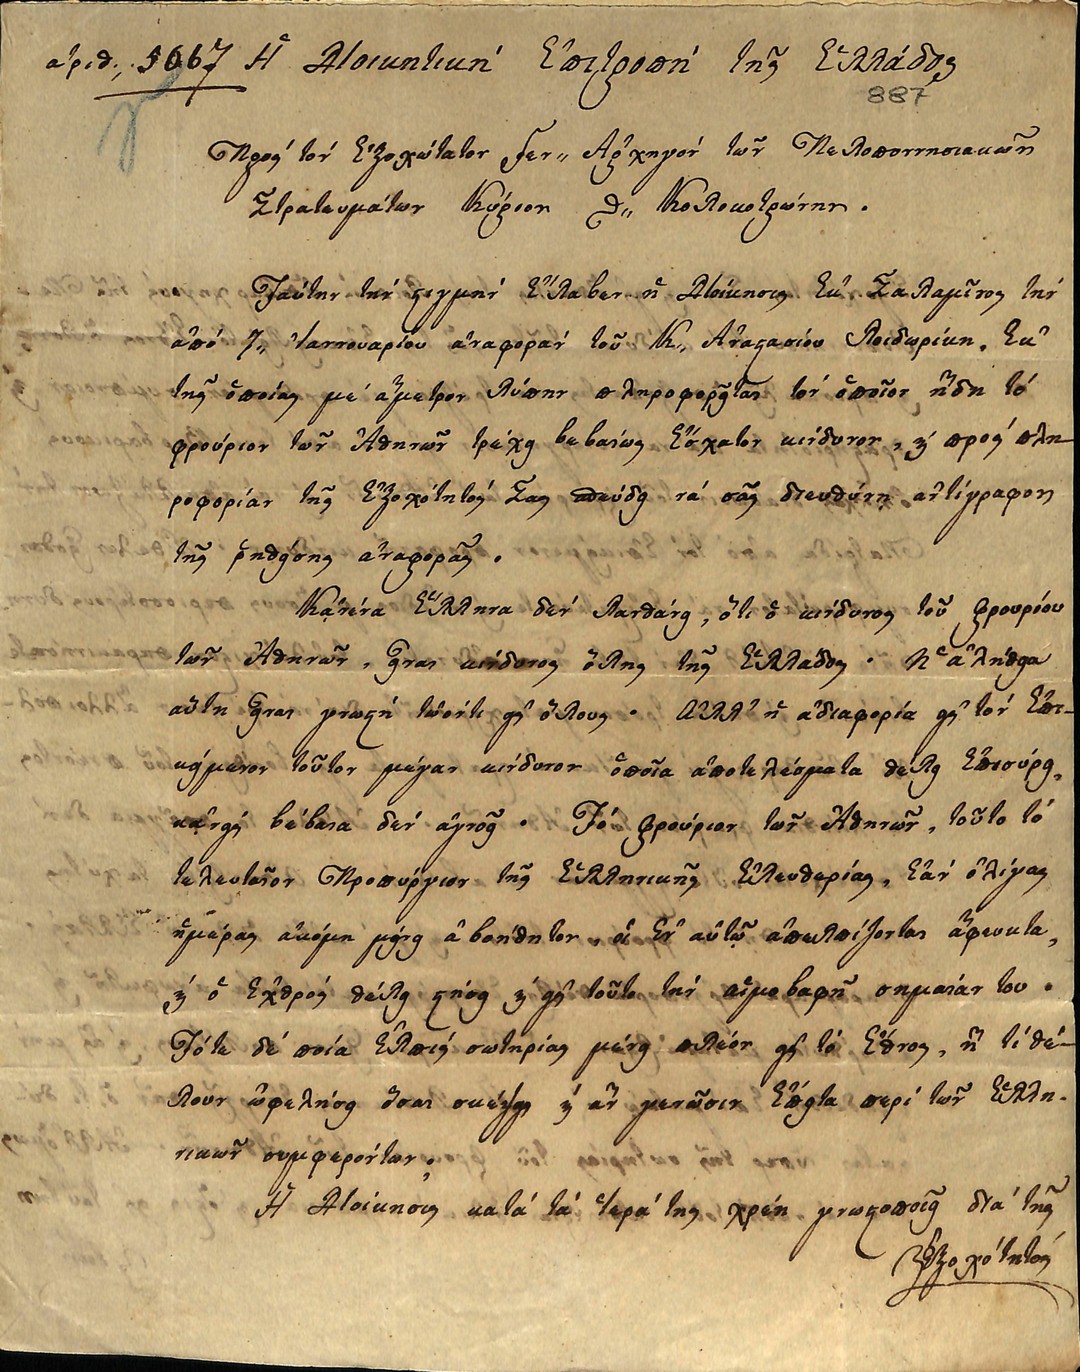 ἀριθ. 5067 Ἡ Διοικητικὴ Ἐπιτροπὴ τῆς Ἑλλάδος
887
Πρὸς τὸν Ἐξοχώτατον Γεν,, Ἀρχηγὸν τῶν Πελοποννησιακῶν
Στρατευμάτων Κύριον Θ,, Κολοκοτρώνην.
Ταύτην τὴν στιγμὴν ἔλαβεν ἡ Διοίκησις ἐκ Σαλαμῖνος τὴν
ἀπὸ 7,, Ἰαννουαρίου ἀναφορὰν τοῦ Κ,, Ἀναστασίου Λοιδωρίκη, ἐκ
τῆς ὁποίας μὲ ἄμετρον λύπην πληροφορεῖται τὸν ὁποῖον ἤδη τὸ
φρούριον τῶν Ἀθηνῶν τρέχει βεβαίως ἔσχατον κίνδυνον, ϗ πρὸς πλη-
ροφορίαν τῆς Ἐξοχότητός Σας σπεύδει νὰ σᾶς διευθύνῃ ἀντίγραφον
τῆς ῥηθείσης ἀναφορᾶς.
Κᾀνένα Ἕλληνα δὲν λανθάνει, ὅτι ὁ κίνδυνος τοῦ φρουρίου
τῶν Ἀθηνῶν, εἶναι κίνδυνος ὅλης τῆς Ἑλλάδος. Ἡ ἀλήθεια
αὕτη εἶναι γνωστὴ τωόντι εἰς ὅλους. Ἀλλ' ἡ ἀδιαφορία εἰς τὸν ἐπι-
κείμενον τοῦτον μέγαν κίνδυνον ὁποῖα ἀποτελέσματα θέλει ἐπισύρει,
κᾀνεὶς βέβαια δὲν ἀγνοεῖ. Τὸ φρούριον τῶν Ἀθηνῶν, τοῦτο τὸ
τελευταῖον Προπύργιον τῆς Ἑλληνικῆς Ἐλευθερίας, ἐὰν ὀλίγας
ἡμέρας ἀκόμη μείνῃ ἀβοήθητον, οἱ ἐν αὐτῷ ἀπελπίζονται ἄφευκτα,
ϗ ὁ ἐχθρὸς θέλει στήσῃ ϗ εἰς τοῦτο τὴν αἱμοβαφῆ σημαίαν του.
Τότε δὲ ποία ἐλπὶς σωτηρίας μένει πλέον εἰς τὸ ἔθνος, ἢ τί θέ-
λουν ὠφελήσῃ ὅσαι σκέψεις ϗ ἂν γενῶσιν ἔπειτα περὶ τῶν Ἑλλη-
νικῶν συμφερόντων;
Ἡ Διοίκησις κατὰ τὰ ἱερά της χρέη γνωστοποιεῖ διὰ τῆς
Ἐξοχότητός